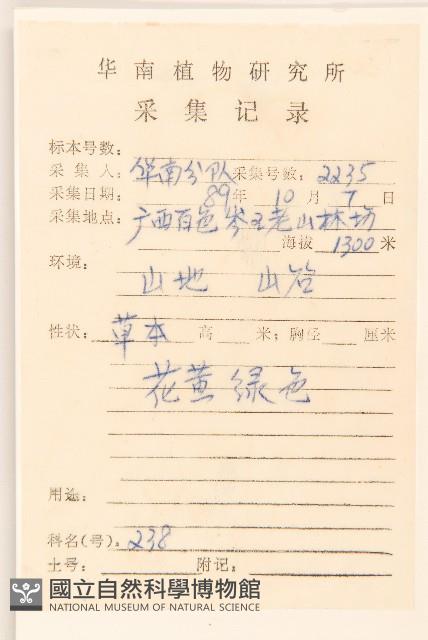 华南植物研究所
采集记录
标本号数:
采集人: 华南分队 采集号数: 2235
采集日期: 89年 10月 7日
采集地点: 广西百色岑王老山林场
海拔 1300 米
环境:
山地 山谷
性状: 草本 高 米; 胸径 厘米
花黄绿色
用途:
科名(号): 238
土号: 附记:
國立自然科學博物館
NATIONAL MUSEUM OF NATURAL SCIENCE